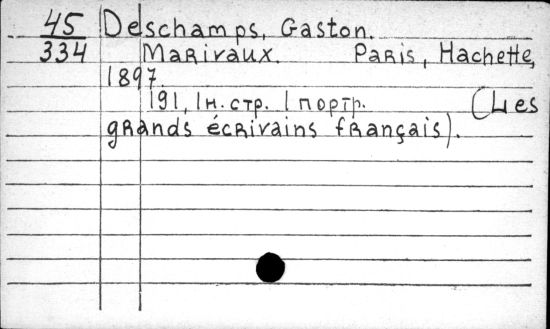 45 Deschamps, Gaston.
334 Marivaux. Paris, Hachette,
1897.
191, 1 н. стр. 1 портр. (Les
grands écrivains français).